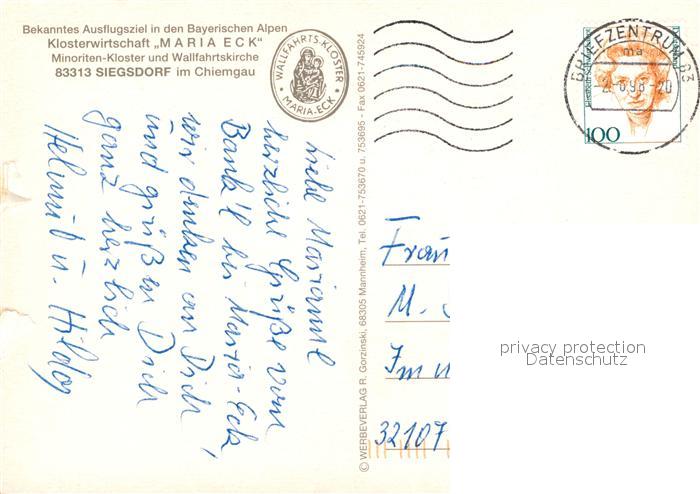 Bekanntes Ausflugsziel in den Bayerischen Alpen
Klosterwirtschaft „MARIA ECK"
Minoriten-Kloster und Wallfahrtskirche
83313 SIEGSDORF im Chiemgau
WALLFAHRTS-KLOSTER
MARIA-ECK
Liebe Marianne
herzliche Grüße vom
Bankl bei Maria-Eck,
wir denken an Dich
und grüßen Dich
ganz herzlich
Helmut u. Hilde
© WERBEVERLAG R. Gorzinski, 68305 Mannheim, Tel. 0621-753670 u. 753695 - Fax 0621-745924
BRIEFZENTRUM 83
ma
100
Frau
M.
Im
32107
privacy protection
Datenschutz